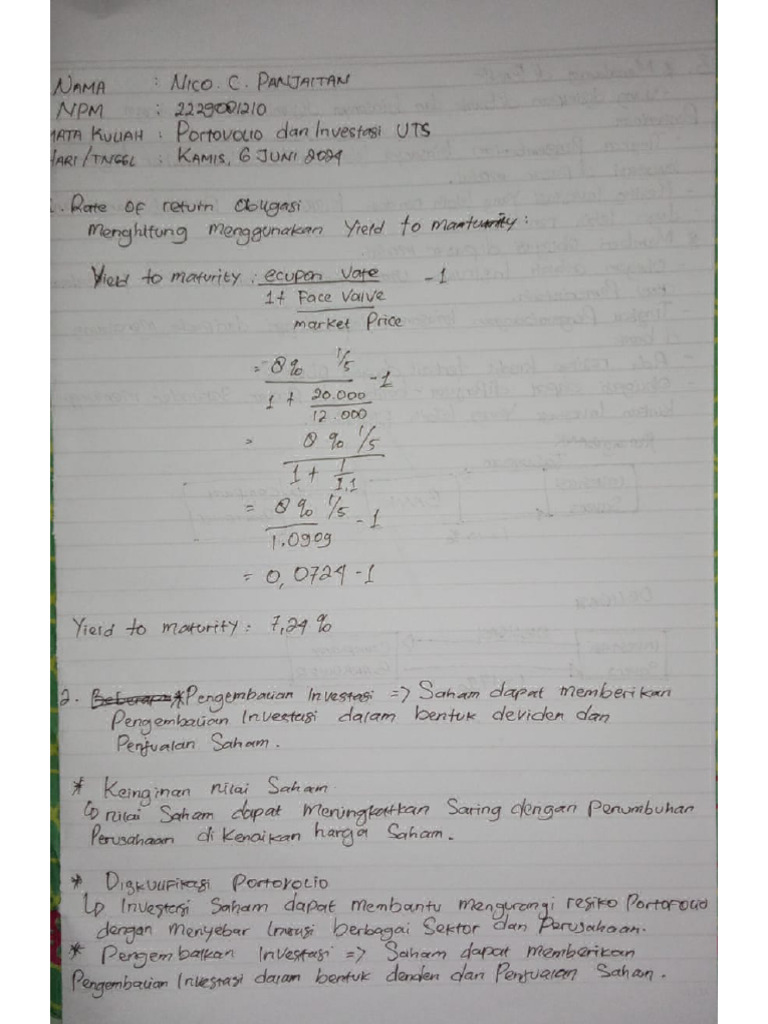 NAMA : NICO. C. PANJAITAN
NPM : 2229001210
MATA KULIAH : Portovolio dan Investasi UTS
HARI/TNGGL : KAMIS, 6 JUNI 2024
Rate of return Obligasi
Menghitung menggunakan Yield to manturity :
Yield to maturity : ecupon vate - 1
1 + Face Valve
market Price
= 8% 1/5 - 1
1 + 20.000
12.000
= 8% 1/5
1 + 1
1.1
= 8% 1/5 - 1
1.0909
= 0,0724 - 1
Yield to maturity : 7,24 %
2. Beberapa * Pengembalian Investasi => Saham dapat memberikan
Pengembalian Investasi dalam bentuk deviden dan
Penjualan Saham.
* Keinginan nilai Saham.
↳ nilai Saham dapat Meningkatkan Saring dengan Penumbuhan
Perusahaan di Kenaikan harga Saham.
* Diskulifikasi Portovolio
↳ Investasi Saham dapat membantu mengurangi resiko Portofolio
dengan Menyebar berbagai Sektor dan Perusahaan.
* Pengembalkan Investasi => Saham dapat memberikan
Pengembalian Investasi dalam bentuk denden dan Penjualan Sahan.